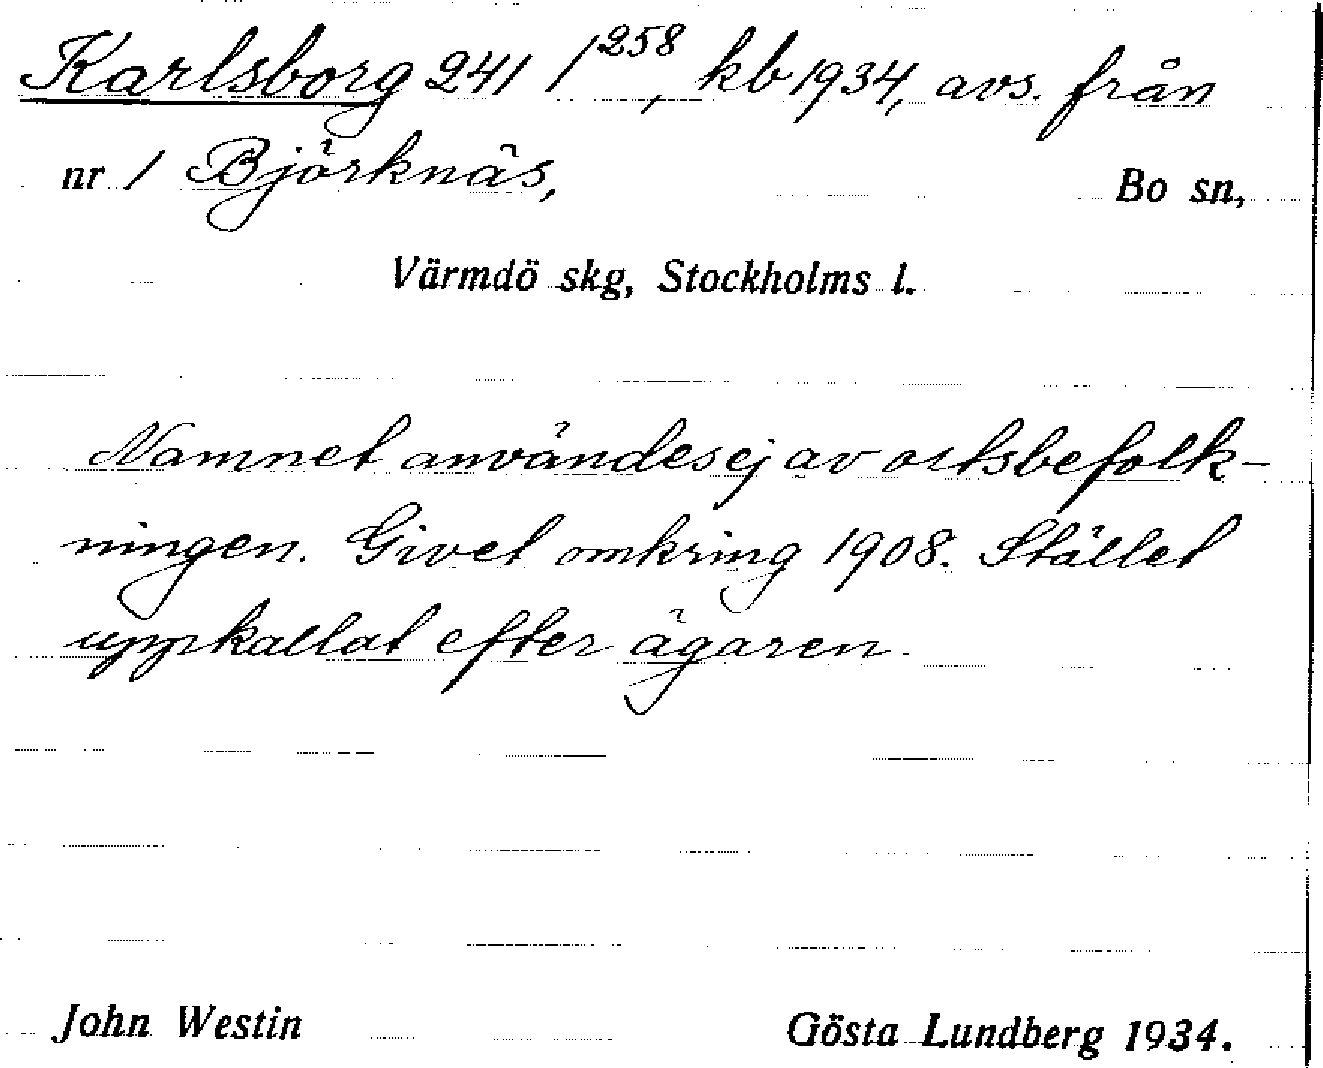 Karlsborg 241 1²⁵⁸, kb 1934, avs. från
nr 1 Björknäs, Bo sn,
Värmdö skg, Stockholms l.
Namnet användes ej av ortsbefolk-
ningen. Givet omkring 1908. Stället
uppkallat efter ägaren.
John Westin Gösta Lundberg 1934.